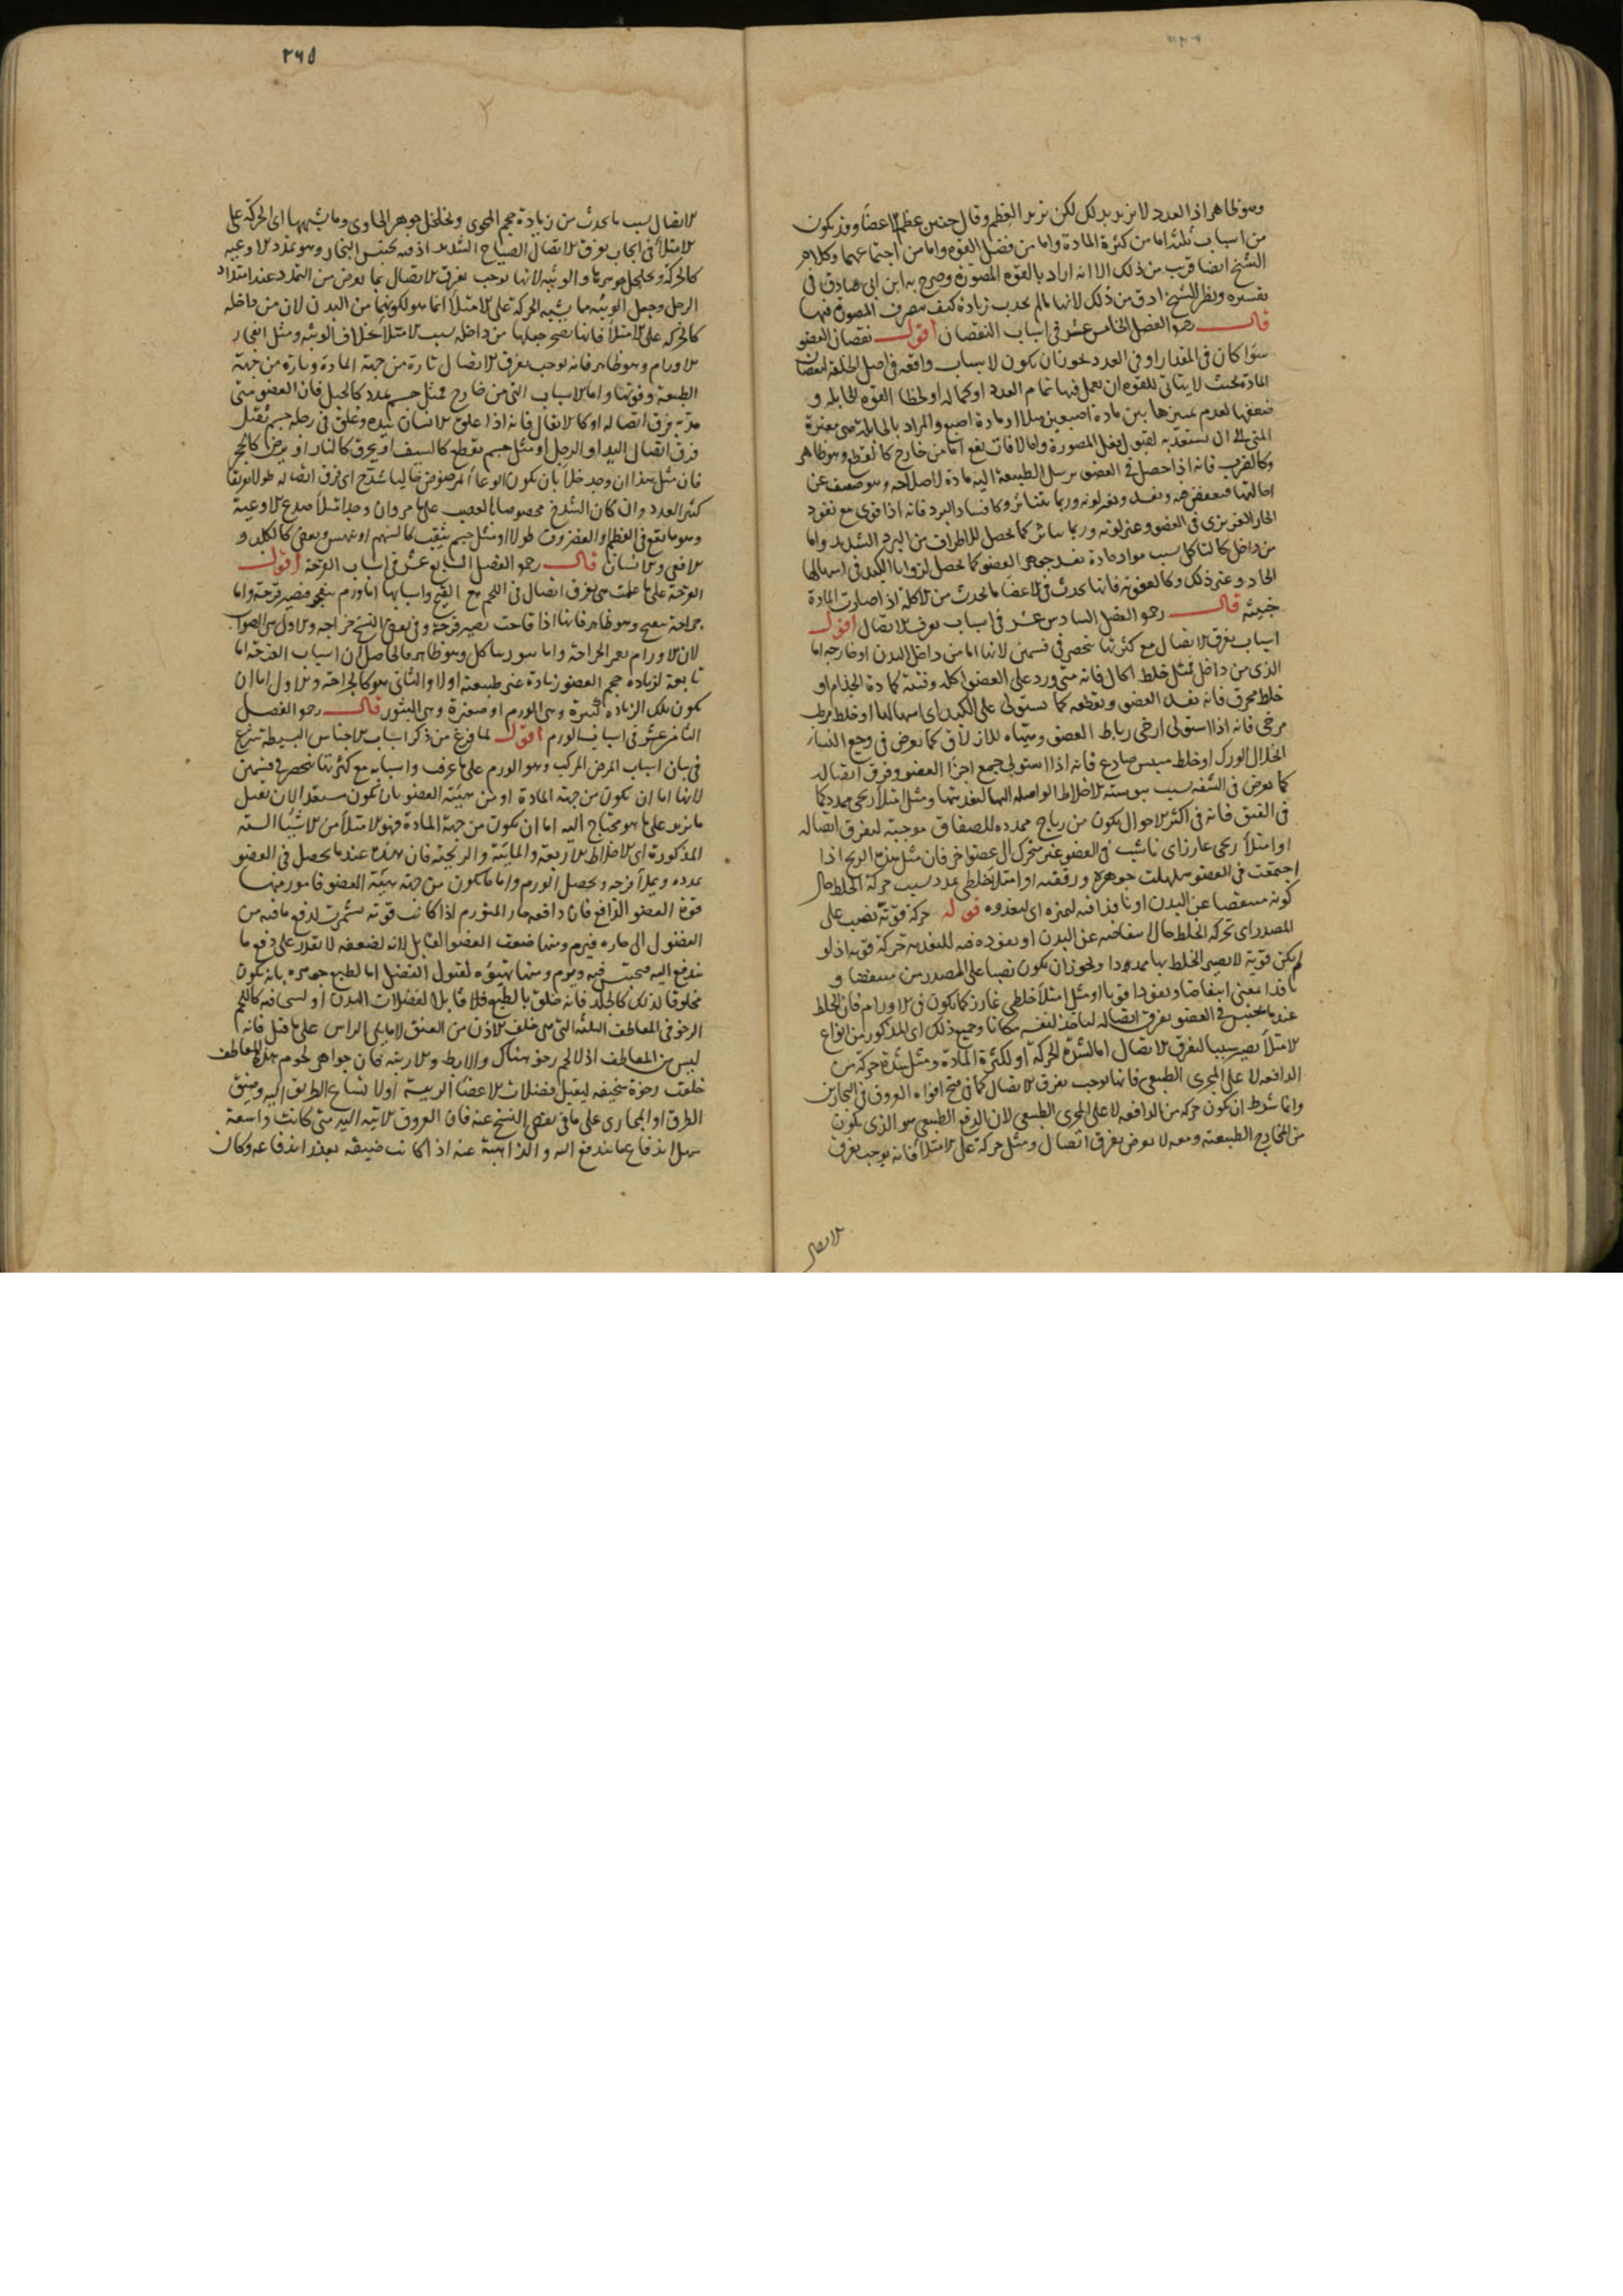 وهو ظاهر اذ العدد لا يزيد بذلك لكن يزيد العظم وقال حنين عظم الاعضا وقد يكون
من اسباب ثلثة اما من كثرة المادة واما من فضل القوة واما من اجتماعهما وكلام
الشيخ ايضا قريب من ذلك الا انه اراد بالقوه المصورة وصرح به ابن ابى صادق فى
تفسيره ونظر الشيخ ادق من ذلك لانها مالم يجذب زيادة كيف يتصرف المصورة فيها
قال رحمه الفصل الخامس عشر فى اسباب النقصان اقول نقصان العضو
سوا كان فى المقدار او فى العدد يجوز ان يكون لاسباب واقعه فى اصل الخلقه لنقصان
المادة بحيث لا يتاتى للقوه ان يعمل فيها تمام العدد او كماله او لخطا القوه الحابله و
ضعفها لعدم تميزها بين مادة اصبعين مثلا او مادة اصبع والمراد بالحابلة هى مغيرة
المنى الى ان يستعد به لقبول فعل المصورة واما لافات تقع اما من خارج كالقطع وهو ظاهر
وكالضرب فانه اذا حصل فى العضو يرسل الطبيعة اليه مادة لاصلاحه وهو ضعيف عن
احالتها فتعفن فيه وتفسد وتغير لونه وربما يتناثر وكافساد البرد فانه اذا قوى مع نفوذ
الحار الغريزى فى العضو وغير لونه وربما تناثر كما يحصل للاطراف من البرد الشديد واما
من داخل كالتاكل بسبب مواد حادة تفسد جوهر العضو كما يحصل لزوايا الكبد فى اسهالها
الحاد وغير ذلك وكالعفونه فانها تحدث فى الاعضا ما يحدث من الاكلة اذا صارت المادة
خبيثه قال رحمه الفصل السادس عشر فى اسباب تفرق الاتصال اقول
اسباب تفرق الاتصال مع كثرتها تنحصر فى قسمين لانها اما من داخل البدن او خارجه اما
الذى من داخل فمثل خلط اكال فانه متى ورد على العضو اكله وفتته كمادة الجذام او
خلط محرق فانه يفسد العضو ويقطعه كما يستولى على الكبد اى اسهالها او خلط مرطب
مرخى فانه اذا استولى ارخى رباط العضو وهيئاه للانزلاق كما يعرض فى وجع النسا
انخلال الورك او خلط ميبس صادع فانه اذا استولى جمع اجزا العضو وفرق اتصاله
كما يعرض فى الشفه بسبب يبوسته الاخلاط الواصله اليها لتغذيتها ومثل امتلأ ريحى ممدد كما
فى الفتق فانه فى اكثر الاحوال يكون من رياح ممدده للصفاق موجبة لتفرق اتصاله
او امتلأ ريحى غارز اى ناشب فى العضو غير متحرك الى عضو اخر فان مثل هذه الريح اذا
اجتمعت فى العضو هلهلت جوهره ورققته او امتلأ خلطى يمدد بسبب حركة الخلط حال
كونه منتفضا عن البدن او نافذا فيه لتميزه اى لتغذوه قوله حركة قوية نصب على
المصدر اى تحركه الخلط حال انتفاضه عن البدن او نفوذه فيه للتغذيه حركة قويه اذ لو
لم تكن قوية لا يصير الخلط بها ممددا ويجوز ان يكون نصبا على المصدر من منتفضا و
نافذا بمعنى انتفاضا ونفوذا قويا او مثل امتلأ خلطى غارز كما يكون فى الاورام فان الخلط
عند ما يحتبس فى العضو يفرق اتصاله لياخذ لنفسه مكانا وجميع ذلك اى المذكور من انواع
الامتلأ يصير سببا لتفرق الاتصال اما لشدة الحركة او لكثرة المادة ومثل شدة حركة من
الدافعه لا على المجرى الطبيعى فانها توجب تفرق الاتصال كما فى فتح افواه العروق فى البحارين
وانما شرط ان يكون حركه من الدافعه لا على المجرى الطبيعى لان الدفع الطبيعى هو الذى يكون
من المخارج الطبيعيه ومعه لا يعرض تفرق اتصال ومثل حركة على الامتلأ فانه يوجب تفرق
الاتصال
٢٦٥
الاتصال بسبب ما يحدث من زيادة حجم المحوى وتخلخل جوهر الحاوى وما يشبهها اى الحركة على
الامتلأ فى ايجاب تفرق الاتصال الصياح الشديد اذ فيه يحتبس البخار وهو يمدد الاوعيه
كالحركة وتخلخل جوهرها والوثبه لانها توجب تفرق الاتصال بما يعرض من التمدد عند امتداد
الرجل وجعل الوثبه مما يشبه الحركة على الامتلأ انما هو لكونهما من البدن لان من داخله
كالحركه على الامتلأ فانها يصح جعلها من داخله بسبب الامتلأ بخلاف الوثبه ومثل انفجار
الاورام وهو ظاهر فانه يوجب تفرق الاتصال تارة من جهة المادة وتارة من جهة
الطبيعه وقوتها واما الاسباب التى من خارج فمثل جسم يمدد كالحبل فان العضو متى
مد به فرق اتصاله او كالاثقال فانه اذا علق الانسان بيده وعلق فى رجله جسم ثقيل
فرق اتصال اليد او الرجل او مثل جسم يقطع كالسيف او يحرق كالنار او يرض كالحجر
فان مثل هذا ان وجد خلأ بان يكون الوعأ المرضوض خاليا شدخ اى فرق اتصاله طولا تفرقا
كثير العدد وان كان الشدخ مخصوصا بالعصب على ما مر وان وجد امتلأ صدع الاوعية
وهو ما يقع فى العظم او الغضروف طولا او مثل جسم يثقب كالسهم او ينهش ويعض كالكلب و
الافعى والانسان قال رحمه الفصل السابع عشر فى اسباب القرحة اقول
القرحة على ما علمت هى تفرق اتصال فى اللحم مع القيح واسبابها اما ورم ينفجر فيصير قرحة واما
جراحة تتقيح وهو ظاهر فانها اذا قاحت تصير قرحة وفى بعض النسخ خراجه والاول هو الصواب
لان الاورام يعم الخراجة واما بثور يتاكل وهو ظاهر فالحاصل ان اسباب القرحة اما
تابعة لزيادة حجم العضو زيادة غير طبيعته اولا والثانى هو كالجراحة والاول اما ان
يكون تلك الزيادة كبيرة وهى الورم او صغيرة وهى البثور قال رحمه الفصل
الثامن عشر فى اسباب الورم اقول لما فرغ من ذكر اسباب الاجناس البسيطة شرع
فى بيان اسباب المرض المركب وهو الورم على ما عرفت واسبابه مع كثرتها تنحصر فى قسمين
لانها اما ان يكون من جهة المادة او من هيئة العضو بان يكون مستعدا لان يقبل
ما يزيد على ما هو محتاج اليه اما ان يكون من جهة المادة فهو الامتلأ من الاشيأ الستة
المذكورة اى الاخلاط الاربعة والمائية والريحية فان هذه عند ما يحصل فى العضو
يمدده ويملأ فرجه ويحصل الورم واما ما يكون من جهة هيئة العضو فامور منها
قوة العضو الدافع فان دافعة جار المتورم اذا كانت قوية يتشمر لدفع ما فيه من
الفضول الى جاره فيرم ومنها ضعف العضو القابل لانه لضعفه لا يقدر على دفع ما
يندفع اليه فيحتبس فيه ويرم ومنها تهيؤه لقبول الفضل اما لطبع جوهره بان يكون
مخلوقا لذلك كالجلد فانه خلق بالطبع قابلا لفضلات البدن او لسخافته كاللحم
الرخو فى المعاطف الثلثة التى هى خلف الاذن من العنق لا ما يلى الراس على ما قيل فانه
ليس من المعاطف اذ لا لحم رخو هناك والابط والاربية فان جواهر لحوم هذه المعاطف
خلقت رخوة سخيفه ليقبل فضلات الاعضا الرييسة اولا لاتساع الطريق اليه وضيق
الطرق او المجارى على ما فى بعض النسخ عنه فان العروق الآتية اليه متى كانت واسعة
سهل اندفاع ما يندفع اليه والذاهبة عنه اذا كانت ضيقه تعذر اندفاعه وكان